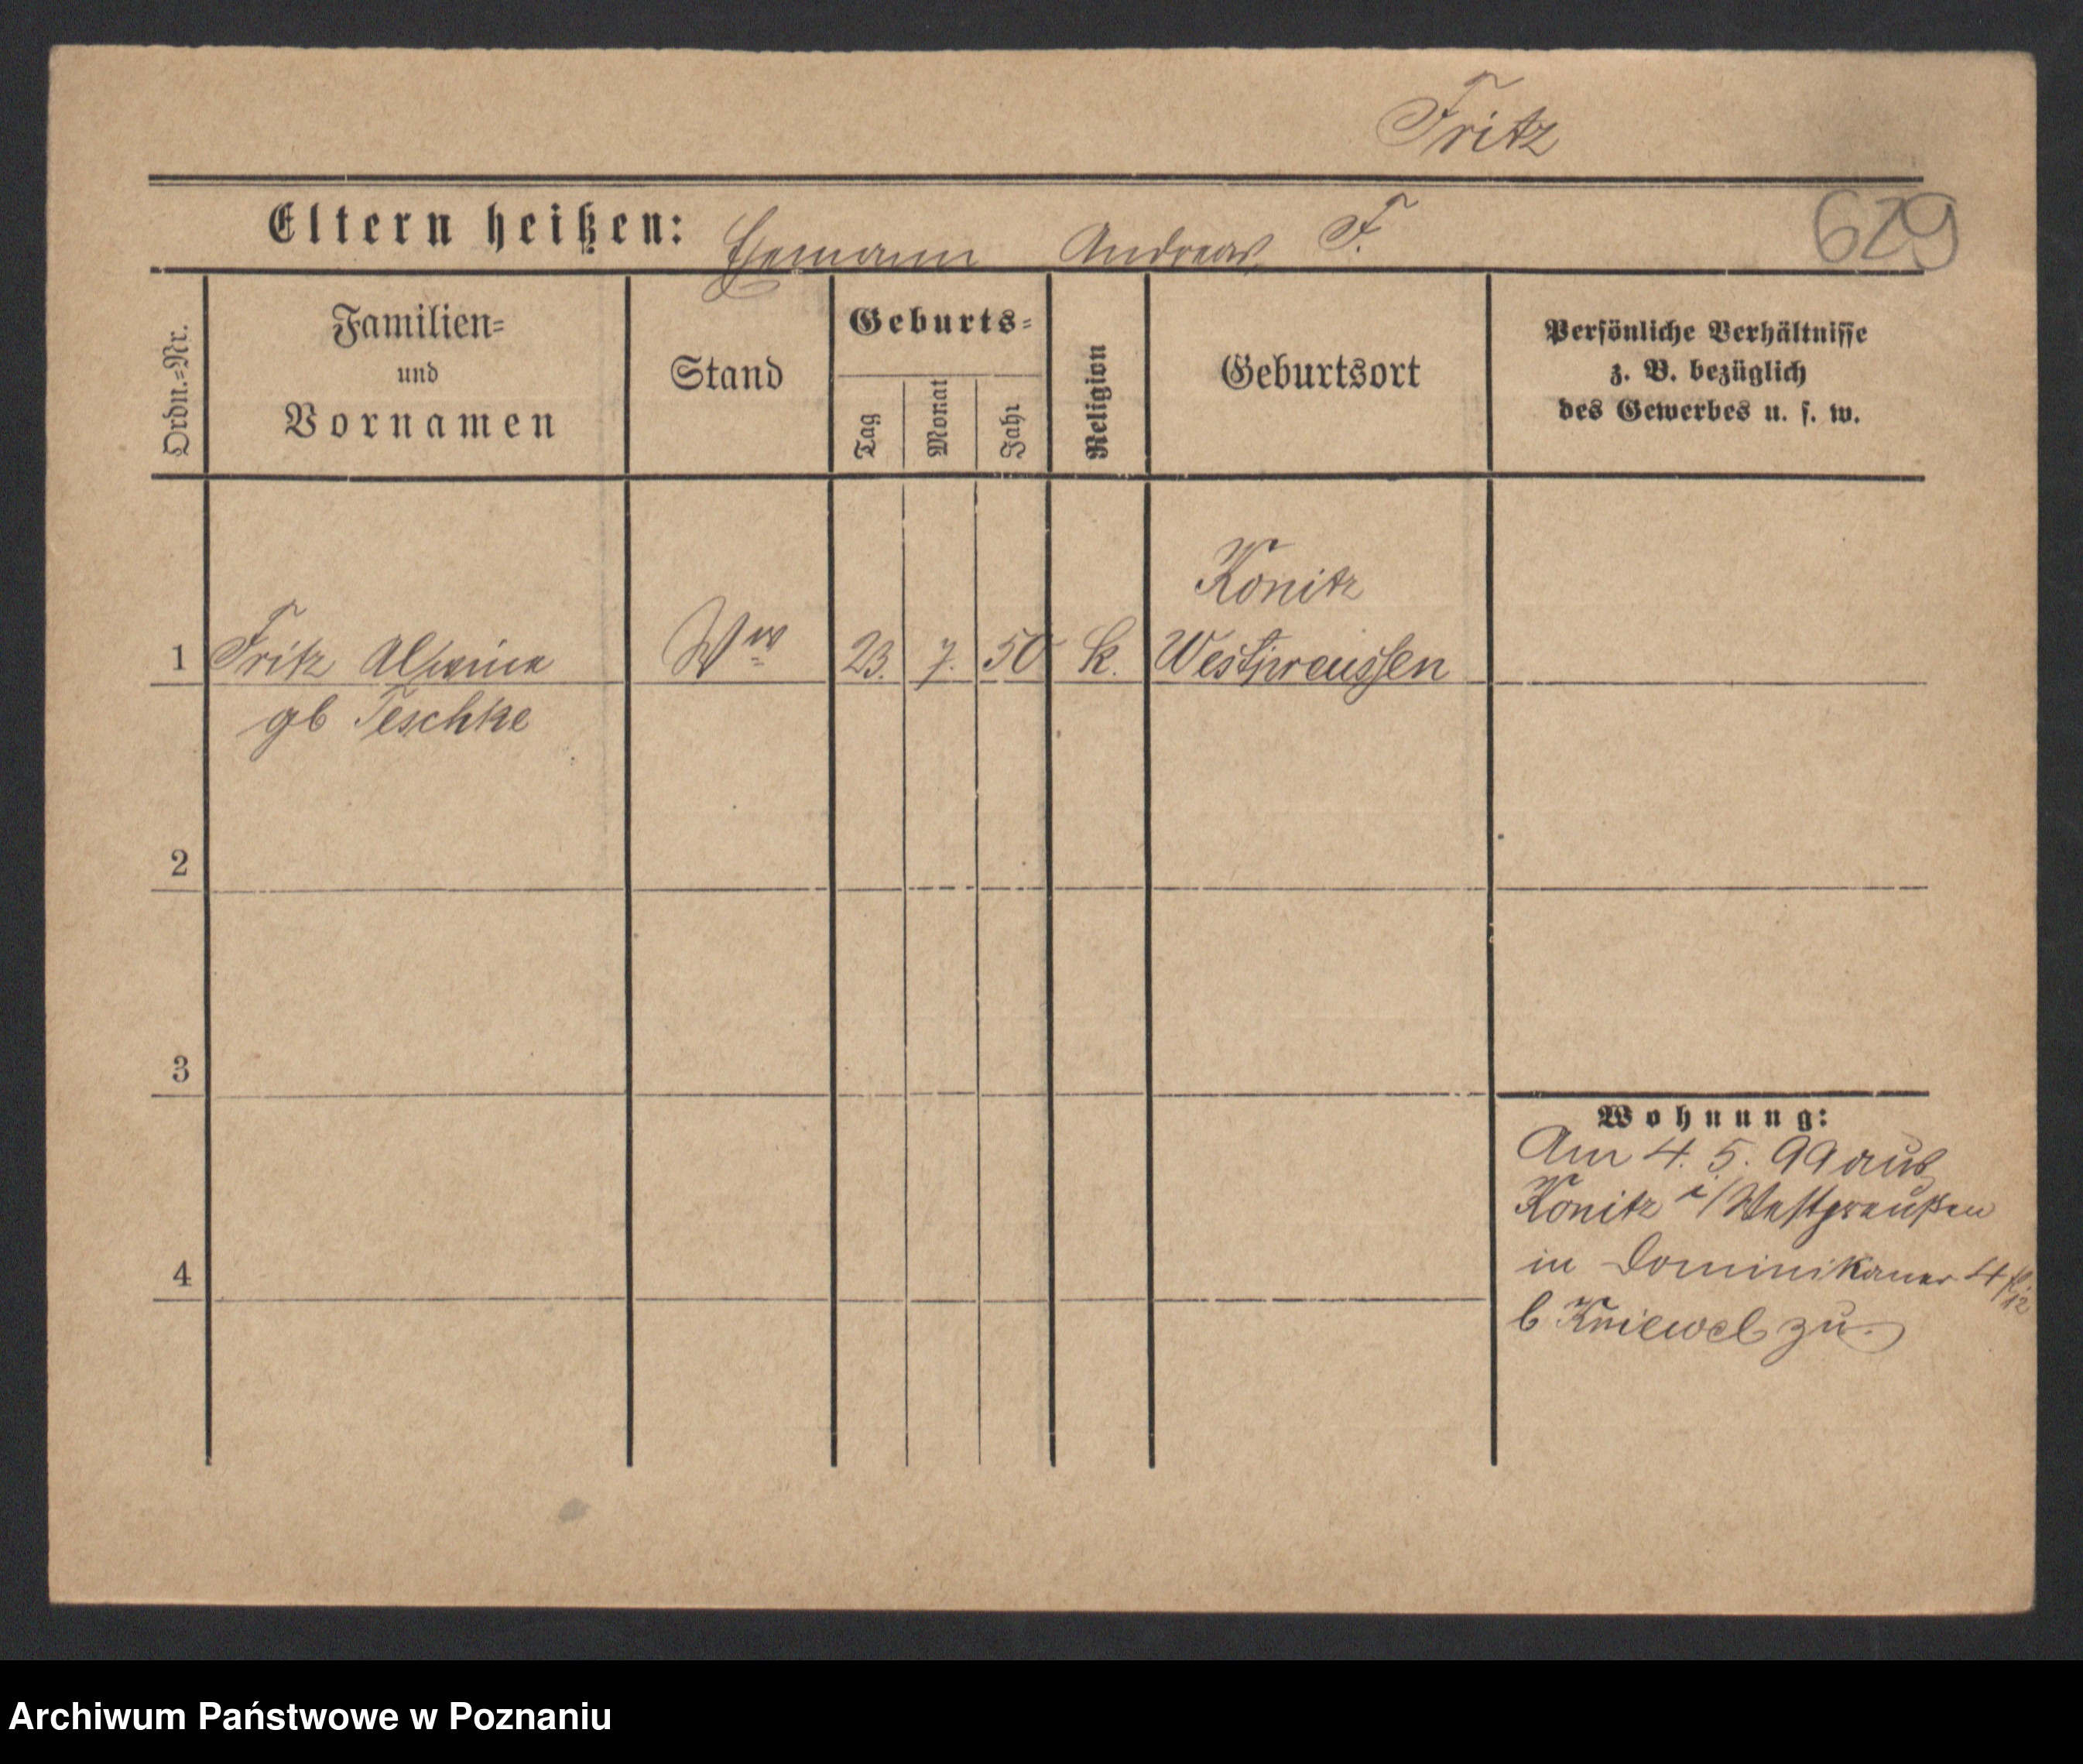 Fritz
Eltern heißen: Ehemann Andreas F.
629
Ordn.=Nr.
Familien=
und
Vornamen
Stand
Geburts=
Tag
Monat
Jahr
Religion
Geburtsort
Persönliche Verhältnisse
z. B. bezüglich
des Gewerbes u. s. w.
Konitz
1 Fritz Alwine Www 23. 7. 50 k. Westpreussen
gb Teschke
2
3
Wohnung:
Am 4. 5. 99 aus
Konitz i/Westpreußen
4
in Dominikaner 4
b Kniewel zu.
Archiwum Państwowe w Poznaniu